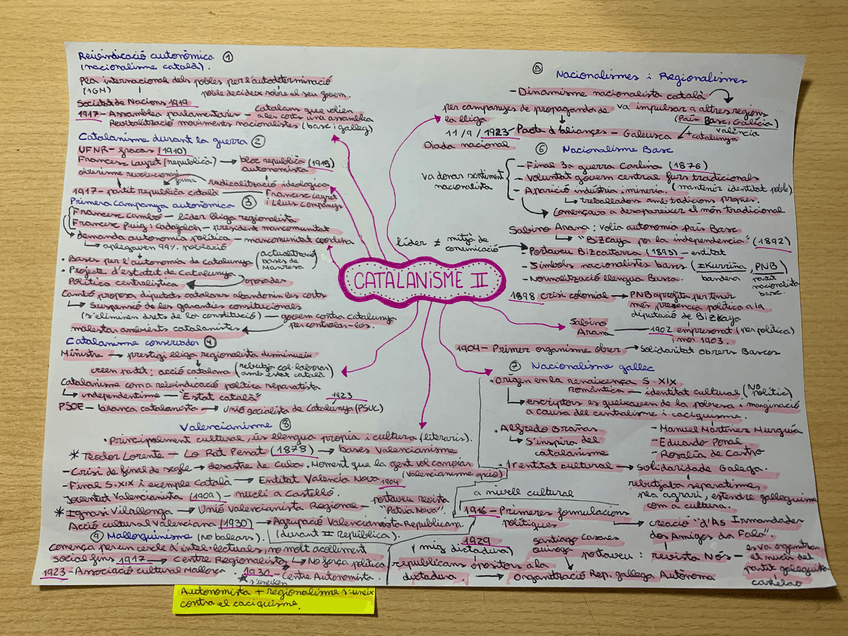 Reivindicació autonòmica ①
(nacionalisme català).
Pla internacional dels pobles per l'autodeterminació
(1GM) poble decideix sobre el seu govern.
Societat de Nacions 1919
1917 - Assamblea parlamentaris - catalans que volien
a les corts una assamblea
Revitalització moviments nacionalistes (basc i galleg)
Catalanisme durant la guerra ②
UFNR - fracàs (1910)
Francesc Layret (república) → bloc republicà (1918)
autonomista
obrerisme revolucionari
radicalització ideològica
1917 - partit republicà català Francesc Layret
Lluís Companys
Primera campanya autonòmica ③
Francesc Cambó - líder lliga regionalista
Francesc Puig i Cadafalch - president mancomunitat
demanda autonomia política - mancomunitat condueix
↳ apleguen 99% població
• Bases per l'autonomia de catalunya (actualització
bases de
Manresa
• Projecte d'estatut de Catalunya.
Política centralística oposades
Cambó proposa diputats catalans abandonin les corts
↳ Suspensió de les garanties constitucionals
(s'eliminen drets de la constitució) govern contra Catalunya
per controlar-los.
malestar ambients catalanistes
Catalanisme conservador ④
Ministra → prestigi lliga regionalista disminueix
creen partit: acció catalana (rebutja col·laborar
amb estat català)
Catalanisme com a reivindicació política separatista
↳ independentisme - "Estat català" 1923
PSOE - branca catalanista → Unió socialista de Catalunya (PSUC)
CATALANISME II
líder ≠ mitjà de
comunicació
⑤ Nacionalismes i Regionalismes
- Dinamisme nacionalista català
per campanyes de propaganda de va impulsar a altres regions
la lliga (País Basc, Galícia)
valència
11/9/1923 - Pacte d'aliances - Galeusca → catalunya
Diada nacional
⑥ Nacionalisme Basc
va donar sentiment
nacionalista
- Final 3a guerra Carlina (1876)
- Voluntat govern central furs tradicionals
- Aparició indústria mineria. (mantenir identitat poble)
↳ treballadors amb tradicions pròpies.
Començava a desaparèixer el món tradicional
Sabino Arana: volia autonomia país Basc
↳ "Bizcaya por la independencia" (1892)
- Portaveu Bizcaitarra (1893) - entitat
- Símbols nacionalistes bascs (Ikurriña, PNB)
bandera partit
nacionalista
basc
- Normalització llengua Basca.
1898 crisi colonial → PNB aprofita per tenir
més presència política a la
diputació de Bizkaya
Sabino
Arana
1902 empresonat (per política)
mor 1903.
1904 - Primer organisme obrer → Solidaritat obrers Bascos
⑦ Nacionalisme gallec
• Origen en la renaixença S. XIX
romàntica - identitat cultural (No
política)
↳ escriptors es queixaven de la pobresa i marginació
a causa del centralisme i caciquisme.
• Alfredo Brañas
↳ S'inspira del
catalanisme
- Manuel Martínez Murguía
- Eduardo Pondal
- Rosalía de Castro
• Identitat cultural → Solidaridade Galega.
↳ rebutjava separatisme
rka agrari, estendre galleguisme
com a cultura.
a nivell cultural
1916 - Primeres formulacions
polítiques → creació "d'As Irmandades
dos Amigos da Fala".
1929 (mig dictadura)
Santiago Casares
Quiroga
portaveu: revista Nós - es va organitzar
el nucli del
partit galleguista
castelao
republicans opositors a la
dictadura → Organització Rep. gallega Autònoma
Valencianisme ⑧
• Principalment cultural, ús llengua pròpia i cultura (literaris).
* Teodor Llorente - Lo Rat Penat (1878) → bases Valencianisme
- Crisi de final de segle → desastre de Cuba. Moment que la gent vol canviar
(Valencianisme polític)
- Final S. XIX i exemple Català → Entitat València Nova 1904
Joventut Valencianista (1908) - nucli a Castelló. portaveu revista
"Pàtria Nova".
* Ignasi Villalonga → Unió Valencianista Regional
Acció cultural Valenciana (1930) → Agrupació Valencianista Republicana
(durant II república).
⑨ Mallorquinisme (no balears).
Comença per un cercle d'intel·lectuals, no molt acolliment
social fins 1917 → Centre Regionalista → No força política
1923 - Associació cultural Mallorca. 1930 - Centre Autonomista
s'uneixen
Autonomista + regionalisme s'uneix
contra el caciquisme.